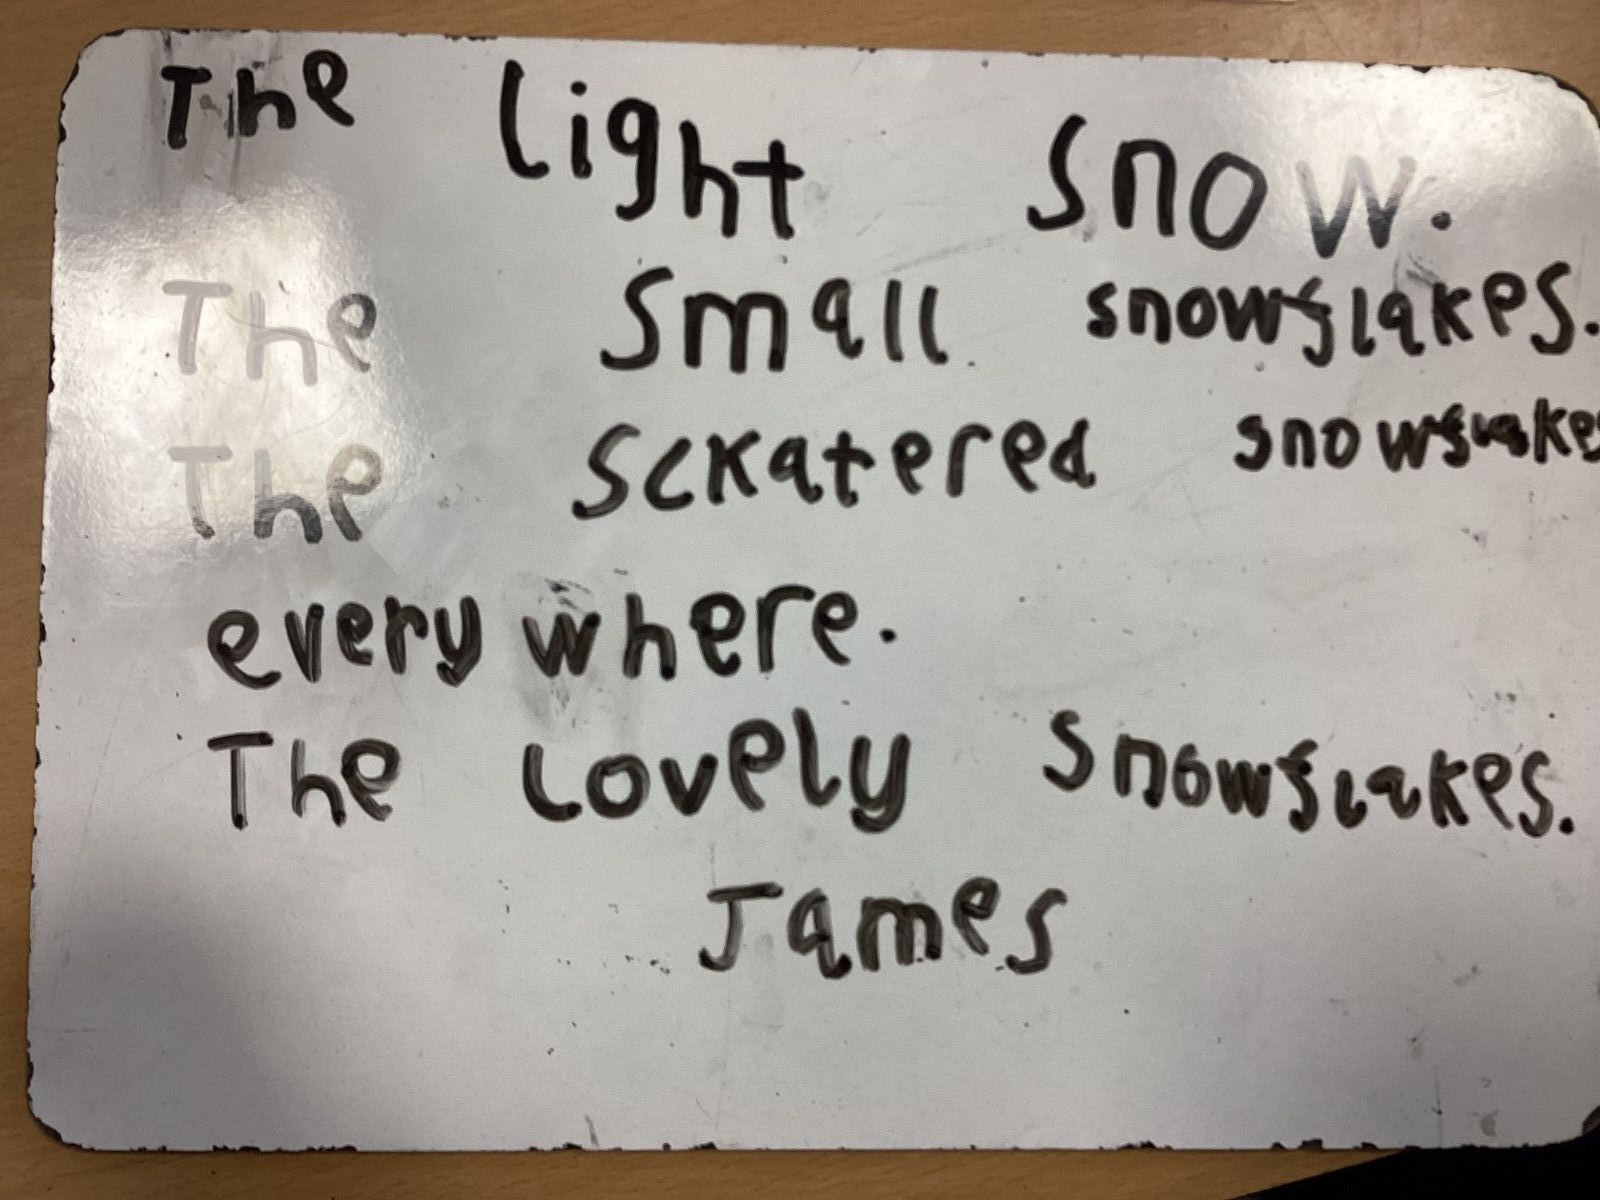 The light snow.
The small snowflakes.
The sckatered snowflakes
every where.
The lovely snowflakes.
James